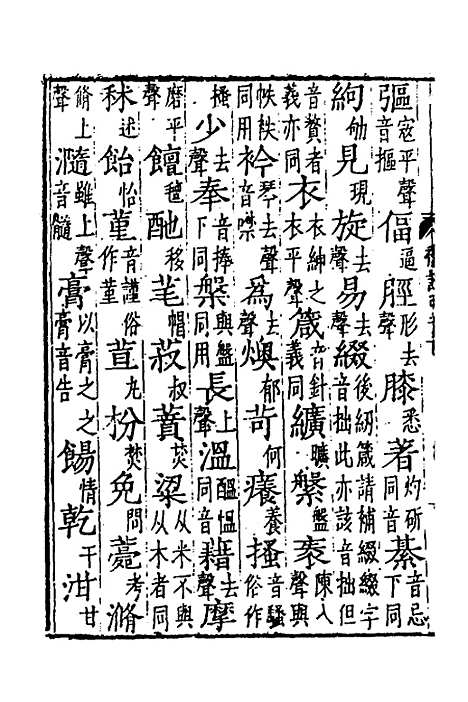 彄寇平聲音摳偪逼脛形去聲膝悉著灼斫同音綦音忌下同
絇劬見現旋去聲易去聲綴後紉箴請補綴綴字音拙此亦該音拙但
音贅者義亦同衣衣紳之衣平聲箴音針義同纊曠鞶盤袠陳入聲與
帙秩同用衿琴去聲音噤為去聲燠郁苛何癢養搔音騷俗作
搔少去聲奉音捧下同槃與盤同用長上聲溫醞愠同音藉去聲摩
磨平聲饘氊酏移芼帽菽叔蕡焚粱从米不與从木者同
秫述飴怡堇音謹俗作菫荁丸枌焚免問薧考滫
脩上聲瀡雖上聲音髓膏以膏之之膏音告餳情乾干泔甘